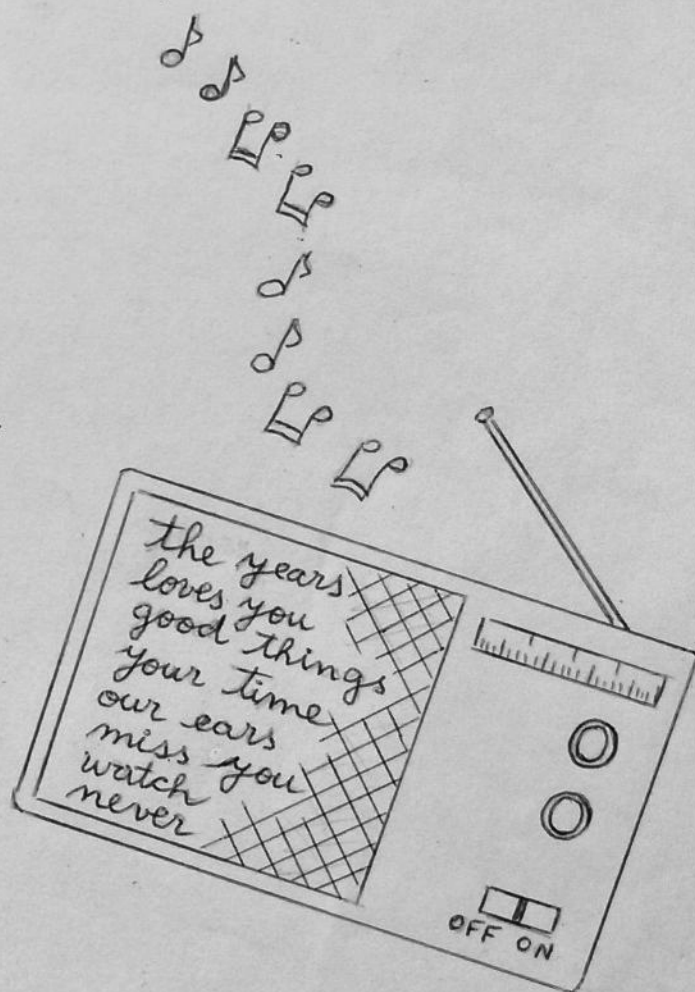 the years
loves you
good things
your time
our ears
miss you
watch
never
OFF ON